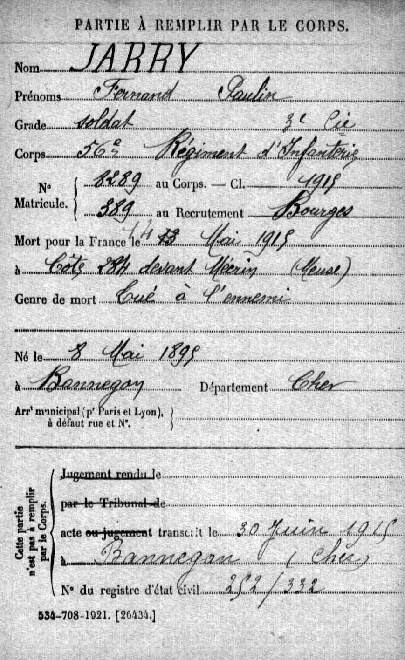 PARTIE À REMPLIR PAR LE CORPS.
Nom JARRY
Prénoms Fernand Paulin
Grade soldat 3e Cie
Corps 56e Régiment d'Infanterie
Nos Matricule. { 8289 au Corps. — Cl. 1915
389 au Recrutement Bourges
Mort pour la France le 14 13 Mai 1915
à Côte 284 devant (Meuse)
Genre de mort Tué à l'ennemi
Né le 8 Mai 1895
à Bannegon Département Cher
Arrt municipal (pr Paris et Lyon), à défaut rue et N°. }
Cette partie n'est pas à remplir par le Corps.
Jugement rendu le
par le Tribunal de
acte ou jugement transcrit le 30 Juin 1915
à Bannegon (Cher)
N° du registre d'état civil 252/332
534-708-1921. [26434.]